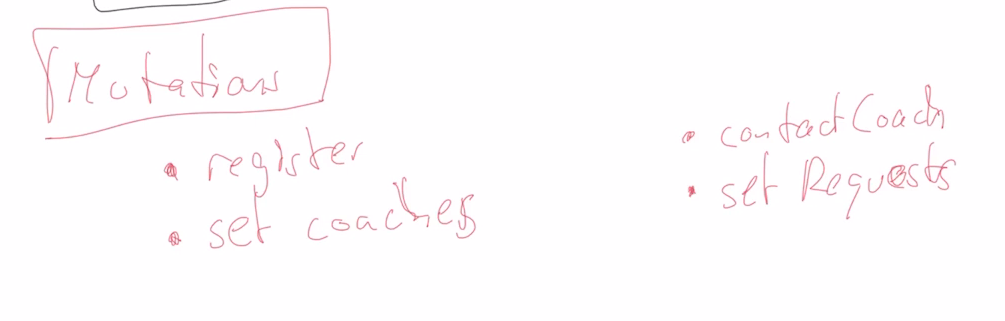 Mutations
• register
• set coaches
• contactCoach
• set Requests